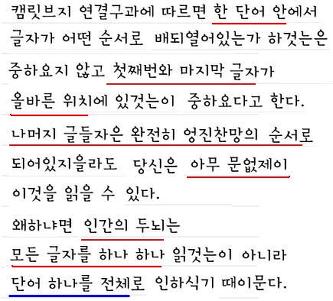 캠릿브지 연결구과에 따르면 한 단어 안에서
글자가 어떤 순서로 배되열어있는가 하것는은
중하요지 않고 첫째번와 마지막 글자가
올바른 위치에 있것는이 중하요다고 한다.
나머지 글들자은 완전히 엉진찬망의 순서로
되어있지을라도 당신은 아무 문없제이
이것을 읽을 수 있다.
왜하냐면 인간의 두뇌는
모든 글자를 하나 하나 읽것는이 아니라
단어 하나를 전체로 인하식기 때이문다.